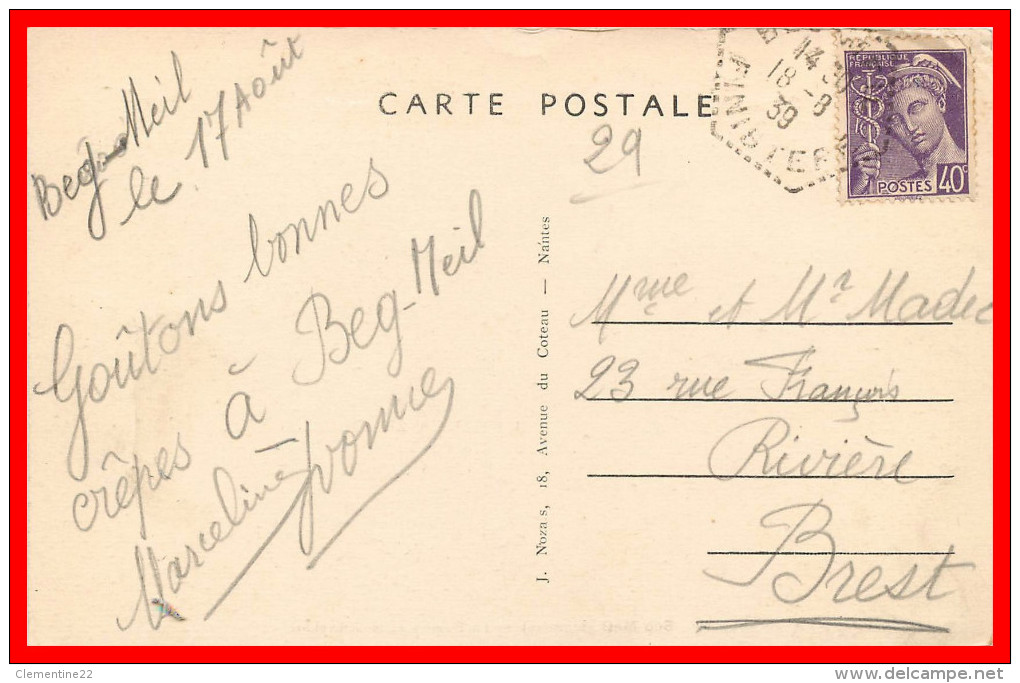 CARTE POSTALE
29
Beg-Meil
le 17 Août
Goûtons bonnes
crêpes à Beg-Meil
Marceline Yvonne
J. Nozais, 18, Avenue du Coteau — Nantes
14 30
18 -8
39
FINISTERE
RÉPUBLIQUE
FRANÇAISE
POSTES 40c
Mme et Mr Madec
23 rue François
Rivière
Brest
Clementine22
www.delcampe.net